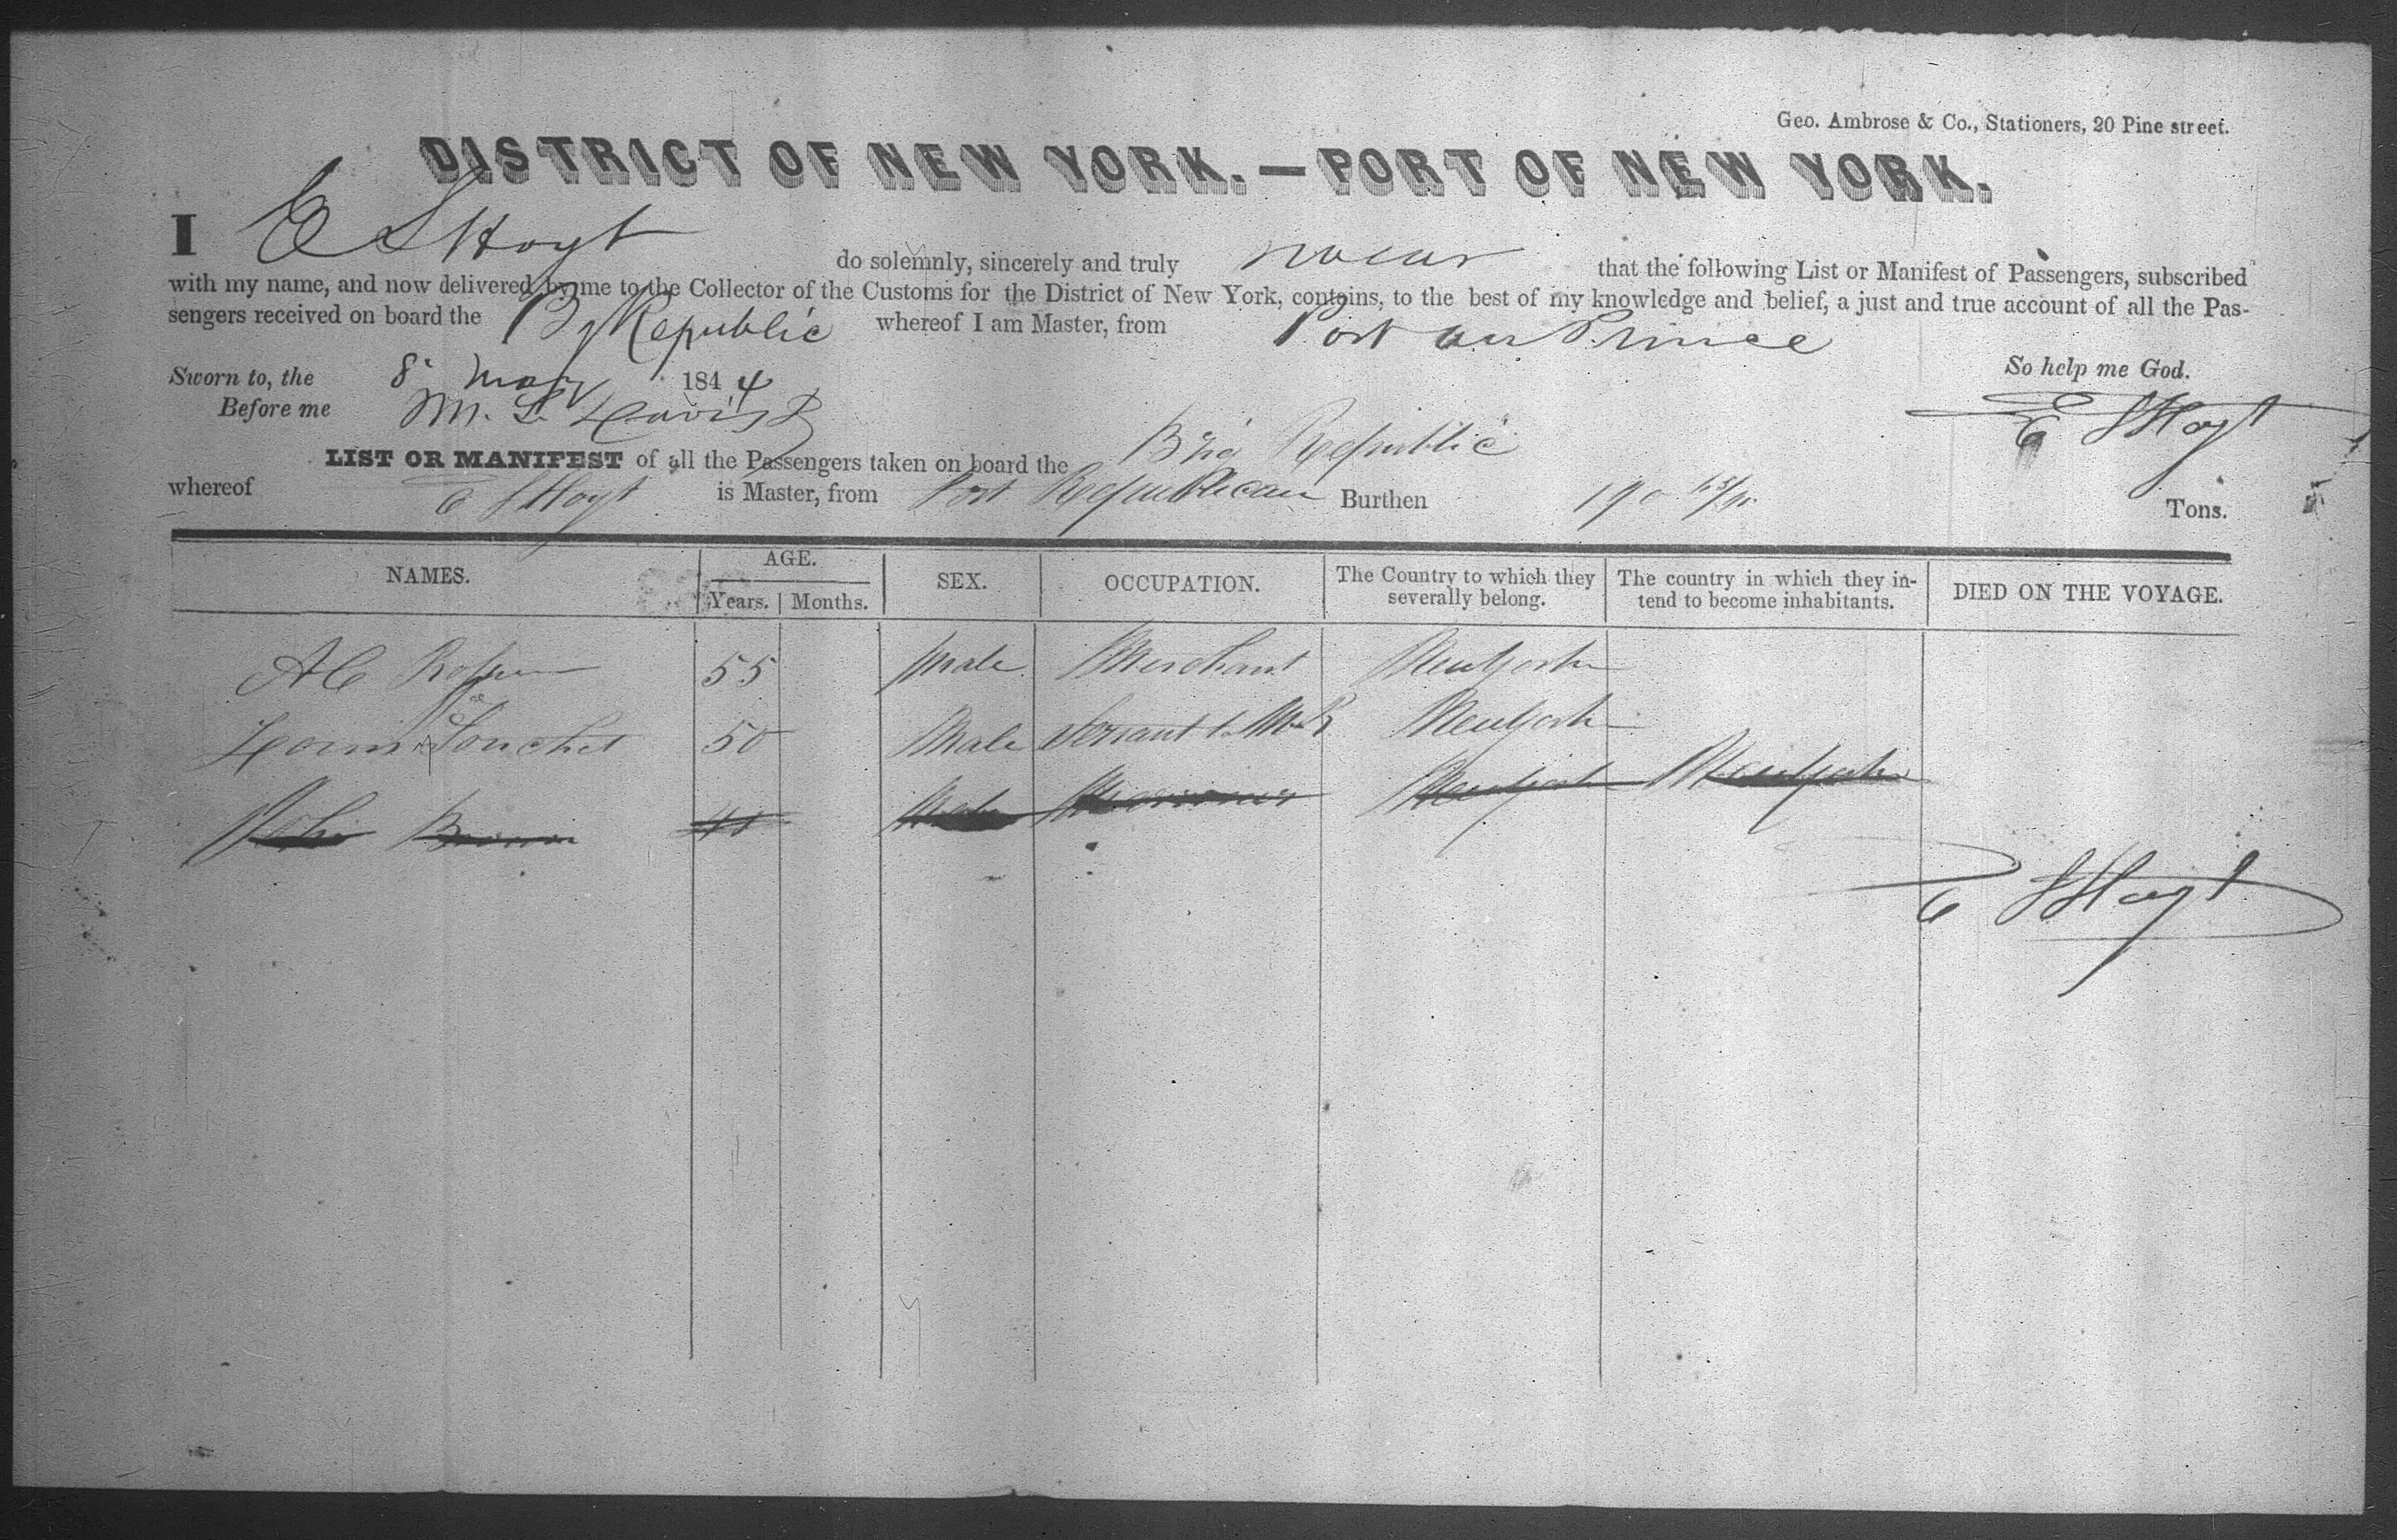 Geo. Ambrose & Co., Stationers, 20 Pine street.
DISTRICT OF NEW YORK.—PORT OF NEW YORK.
I E S Hoyt do solemnly, sincerely and truly swear that the following List or Manifest of Passengers, subscribed
with my name, and now delivered by me to the Collector of the Customs for the District of New York, contains, to the best of my knowledge and belief, a just and true account of all the Pas-
sengers received on board the Bg Republic whereof I am Master, from Port au Prince
So help me God.
Sworn to, the 8 May 1844
Before me M. L. Davis E S Hoyt
LIST OR MANIFEST of all the Passengers taken on board the Brig Republic
whereof E S Hoyt is Master, from Port Republican Burthen 190 Tons.
NAMES. AGE. SEX. OCCUPATION. The Country to which they severally belong. The country in which they in-tend to become inhabitants. DIED ON THE VOYAGE.
Years. Months.
A C 55 Male Merchant New York
50 Male Servant to Mr R New York
John Brown 41 Male Mariner New York New York
E S Hoyt